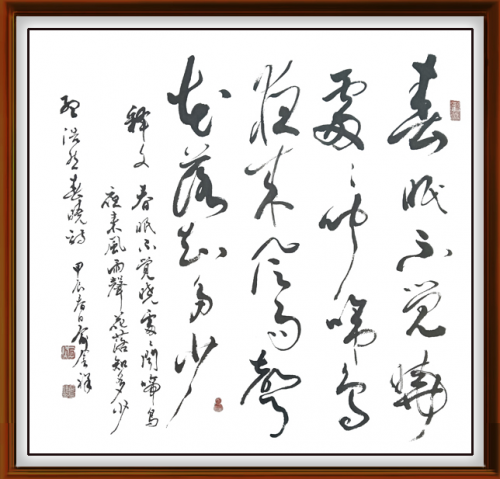 春眠不觉晓
處々闻啼鸟
夜来風雨聲
花落知多少
释文 春眠不觉晓處々闻啼鸟
夜来風雨聲花落知多少
孟浩然春晓诗 甲辰春日